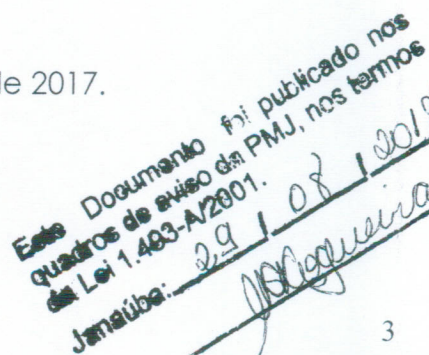 de 2017.
Este Documento foi publicado nos
quadros de aviso da PMJ, nos termos
da Lei 1.493-A/2001.
Janaúba: 29 / 08 / 201
3